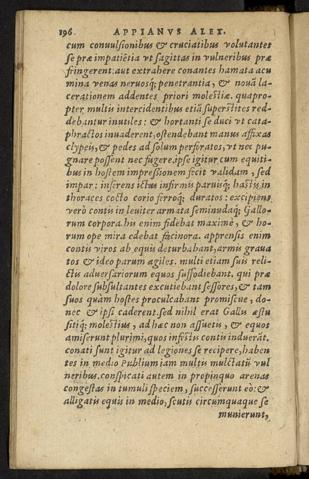 196. APPIANVS ALEX.
cum conuulsionibus & cruciatibus volutantes
se præ impatiẽtia vt sagittas in vulneribus præ
fringerent: aut extrahere conantes hamata acu
mina venas neruosq; penetrantia, & nouã la-
cerationem addentes priori molestiæ. quapro-
pter multis intercidentibus etiã superstites red-
debantur inutiles: & hortanti se duci vt cata-
phractos inuaderent, ostendebant manus affixas
clypeis, & pedes ad solum perforatos, vt nec pu-
gnare possent nec fugere. ipse igitur cum equiti-
bus in hostem impressionem fecit validam, sed
impar: inferens ictus infirmis paruisq; hastis in
thoraces cocto corio ferroq; duratos: excipiens
verò contis in leuiter armata seminudaq; Gallo-
rum corpora. his enim fidebat maximè, & ho-
rum ope mira edebat facinora. apprensis enim
contis viros ab equis deturbabant, armis graua
tos & ideo parum agiles. multi etiam suis reli-
ctis aduersariorum equos suffodiebant. qui præ
dolore subsultantes excutiebant sessores, & tam
suos quàm hostes proculcabant promiscue, do-
nec & ipsi caderent. sed nihil erat Gallis æstu
sitiq; molestius, ad hæc non assuetis, & equos
amiserunt plurimi, quos infestis contis induerãt.
conati sunt igitur ad legiones se recipere, haben
tes in medio Publium iam multis mulctatũ vul
neribus. conspicati autem in propinquo arenas
congestas in tumuli speciem, successerunt eò: &
alligatis equis in medio, scutis circumquaque se
munierunt,